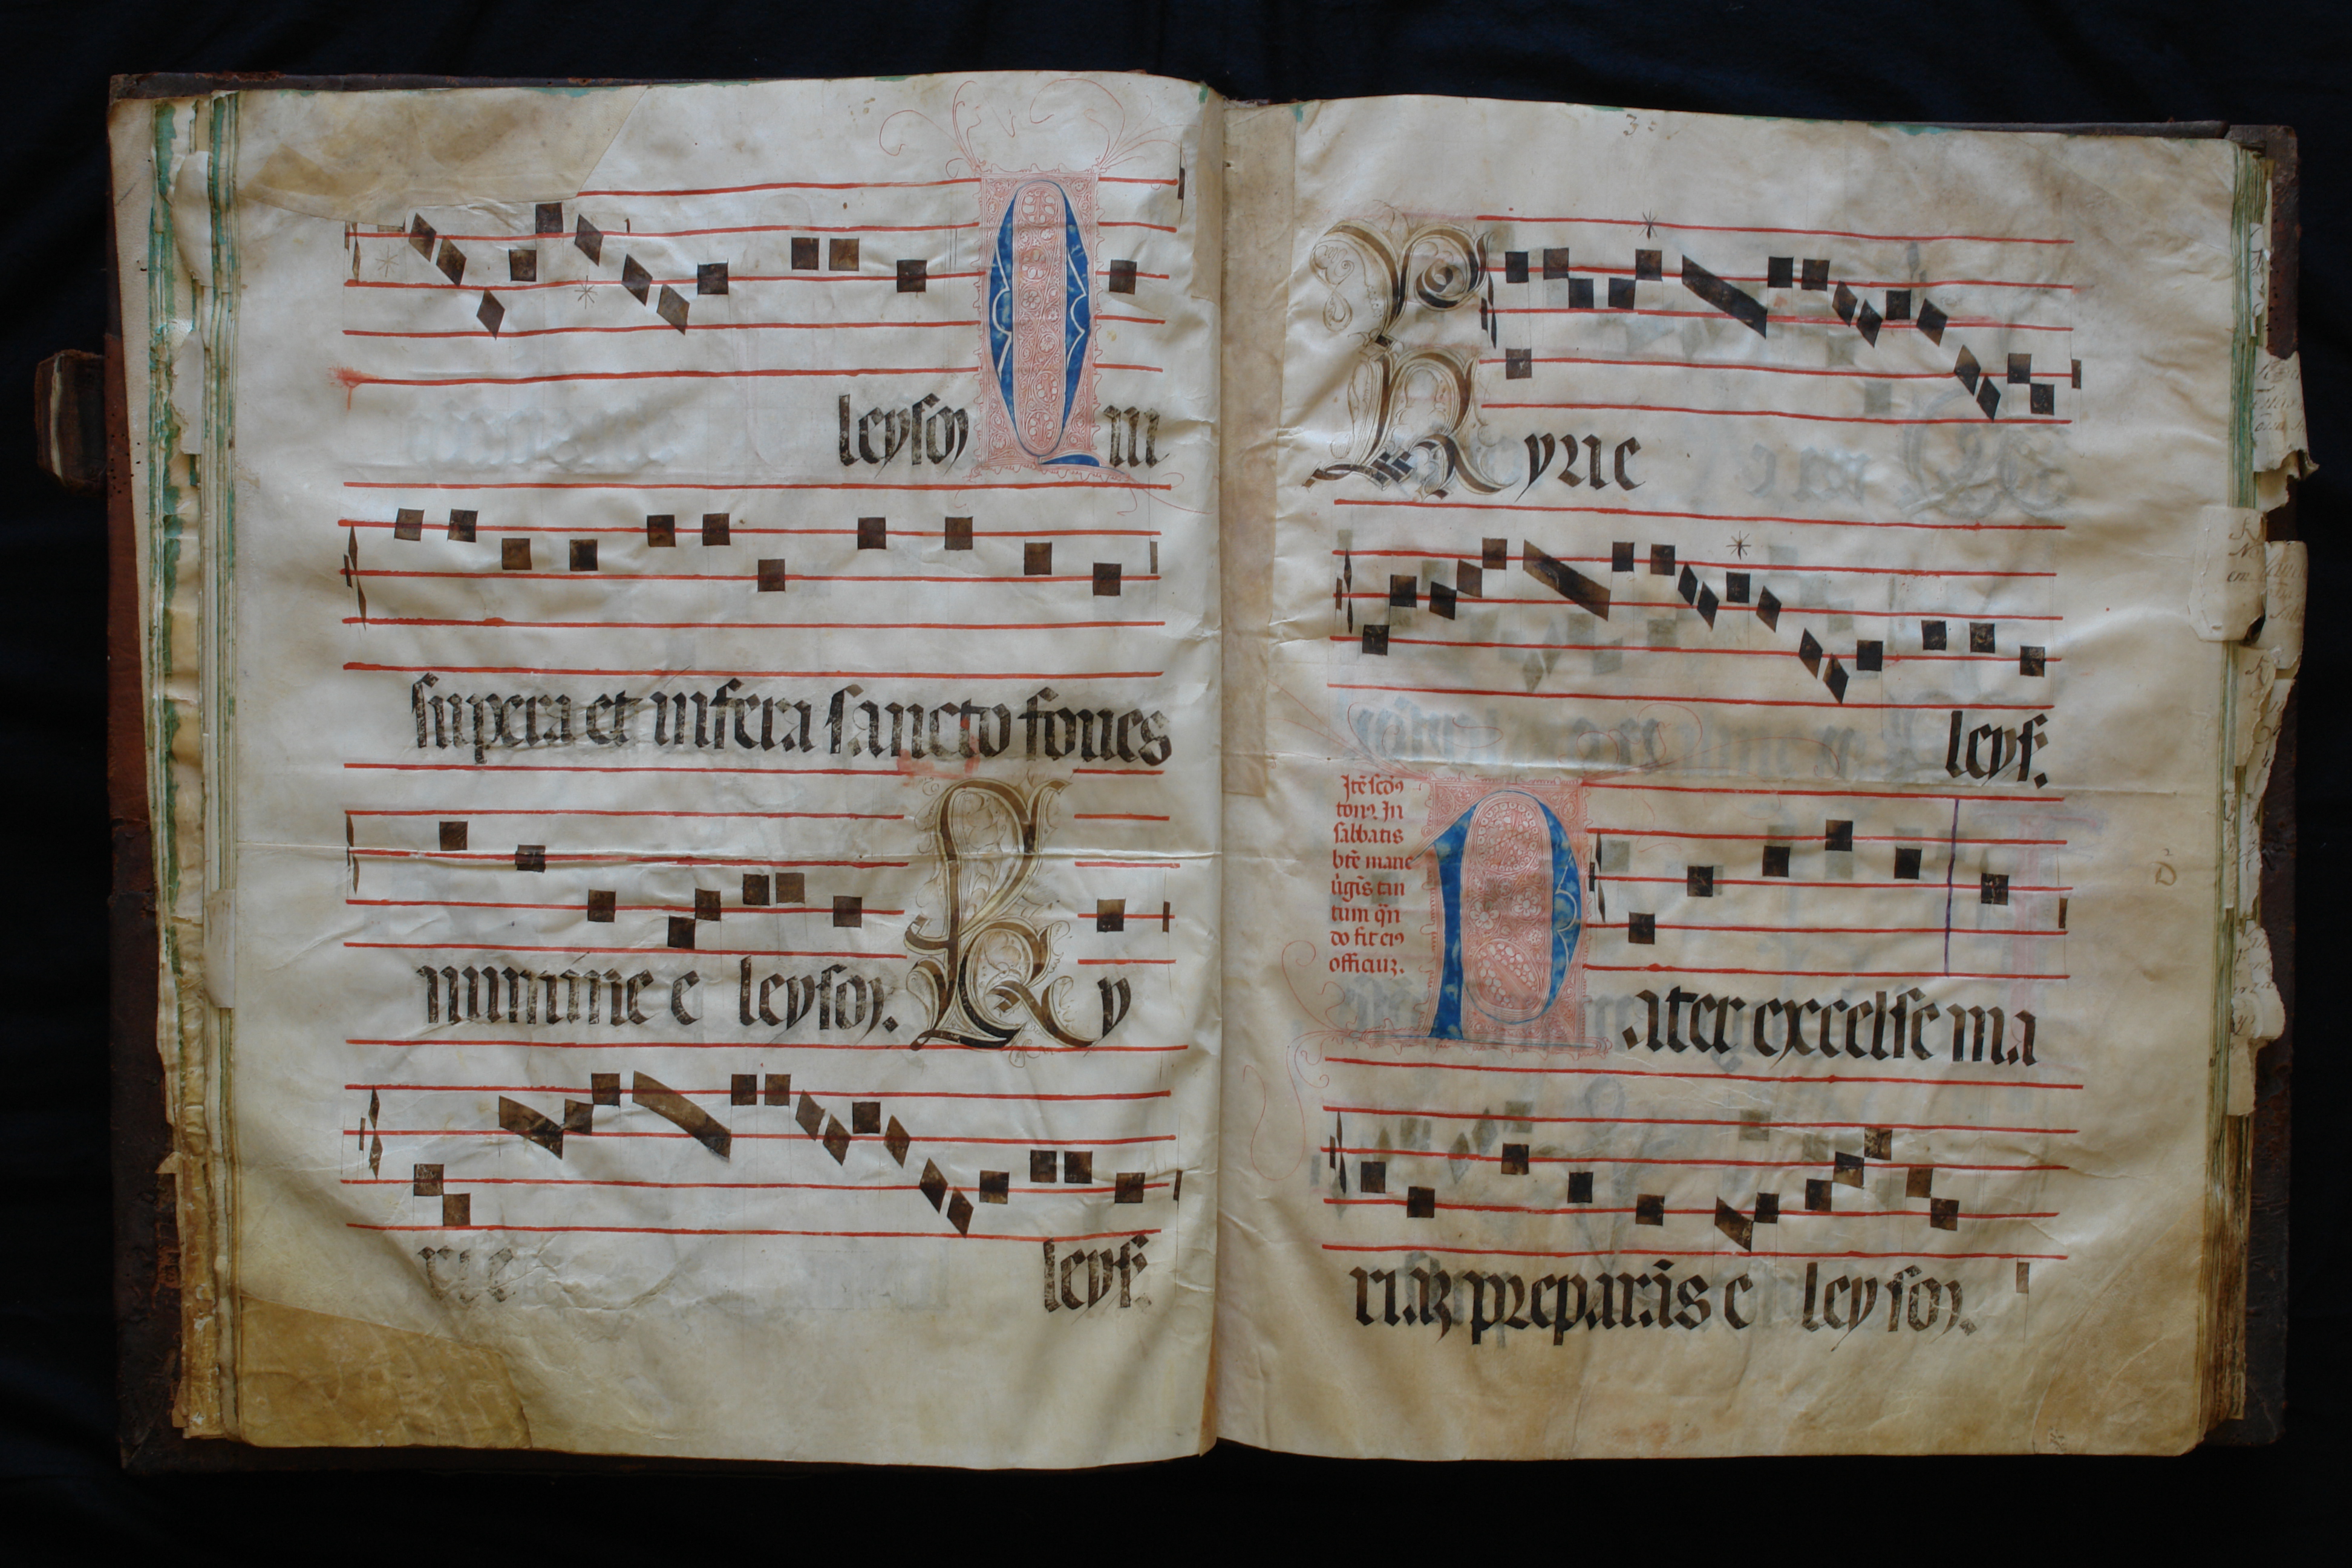 leyson Qui
supera et infera sancto foues
numine e leyson. Ky
rie leys.
Kyrie
leys.
Itē scđs
tonꝰ. In
sabbatis
btē marie
ũgĩs tan
tum qñ
do fit eiꝰ
officiuꝫ.
Pater excelse ma
riaꝫ preparas e leyson.